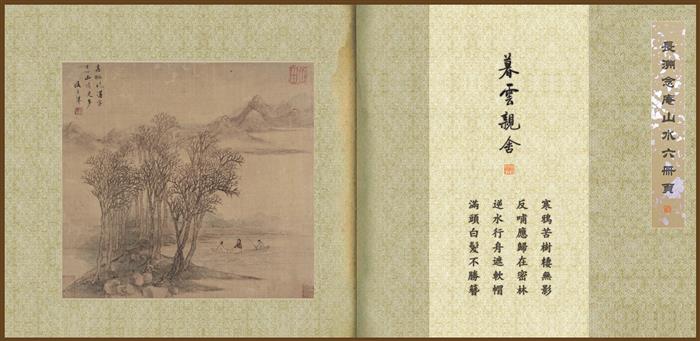 長淵念庵山水六冊頁
暮雲親舍
寒鴉苦樹棲無影
反哺應歸在密林
逆水行舟遮軟帽
滿頭白髮不勝簪